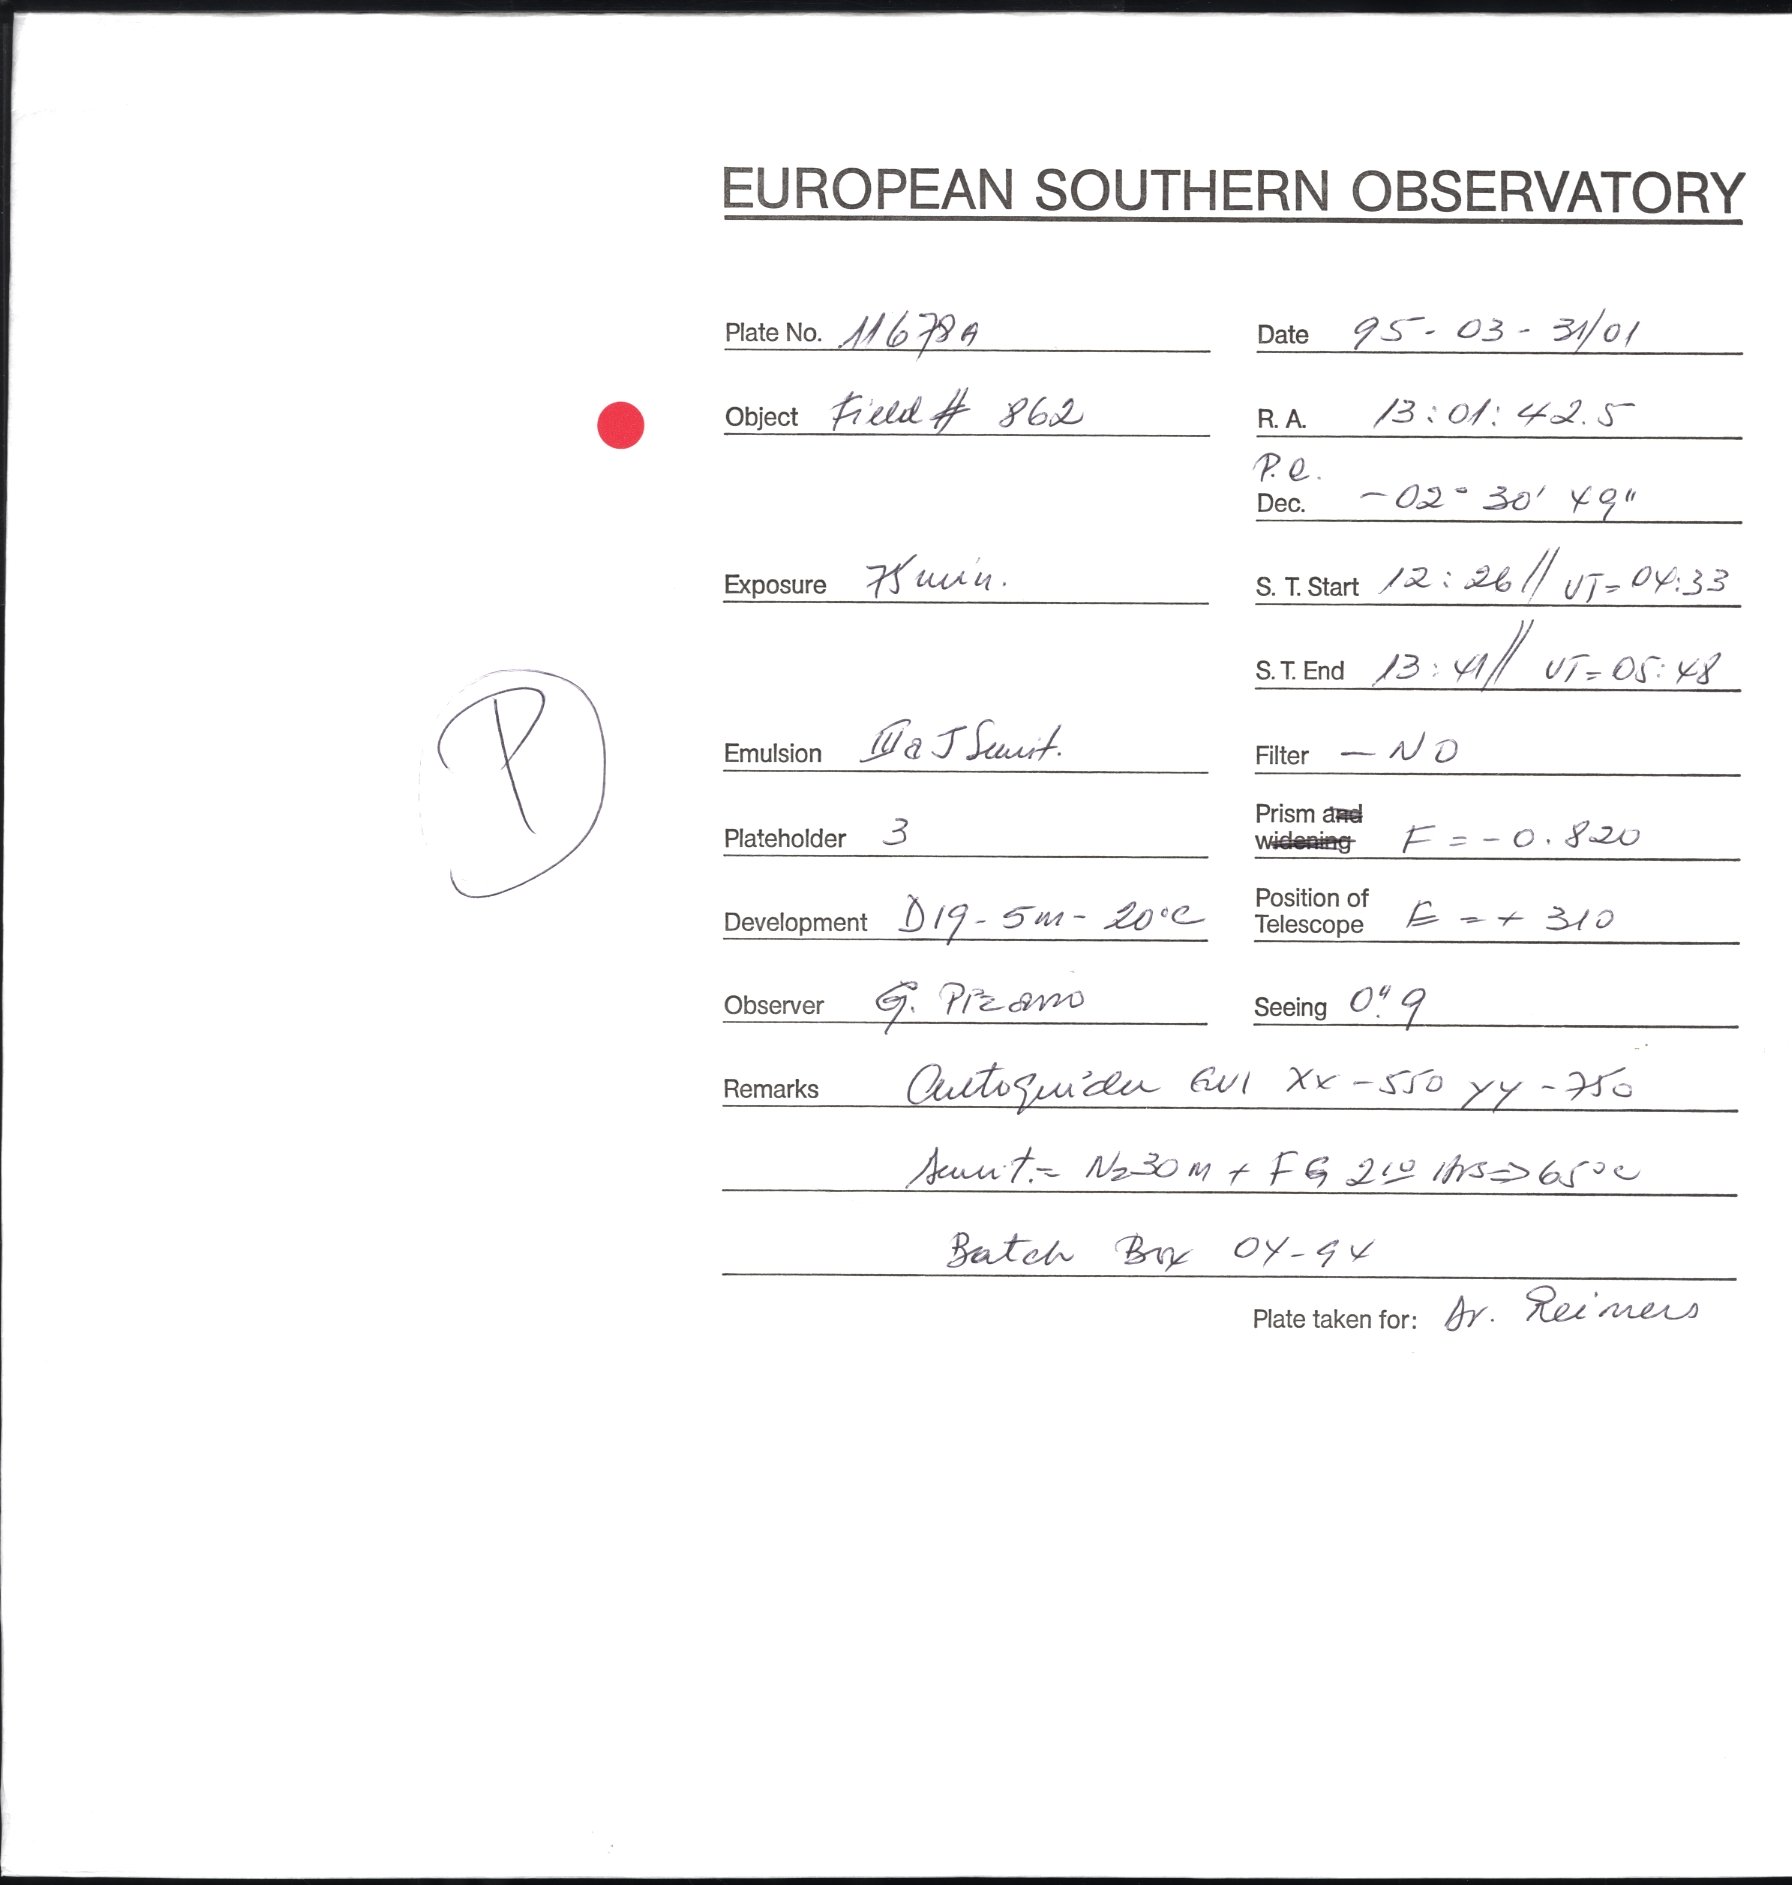 EUROPEAN SOUTHERN OBSERVATORY
Plate No. 11678A Date 95-03-31/01
Object Field # 862 R. A. 13:01:42.5
P.e.
Dec. -02° 30' 49"
Exposure 75 min. S. T. Start 12:26 // UT=04:33
S. T. End 13:41 // UT=05:48
P
Emulsion III a J Sensit. Filter - NO
Plateholder 3 Prism and widening F = -0.820
Development D19-5m-20°C Position of Telescope E = + 310
Observer G. Pizarro Seeing 0".9
Remarks Autoguider XX -550 YY -750
Sensit.= N2 30m + FG Hrs => 65°C
Batch Box 04-94
Plate taken for: Dr. Reimers